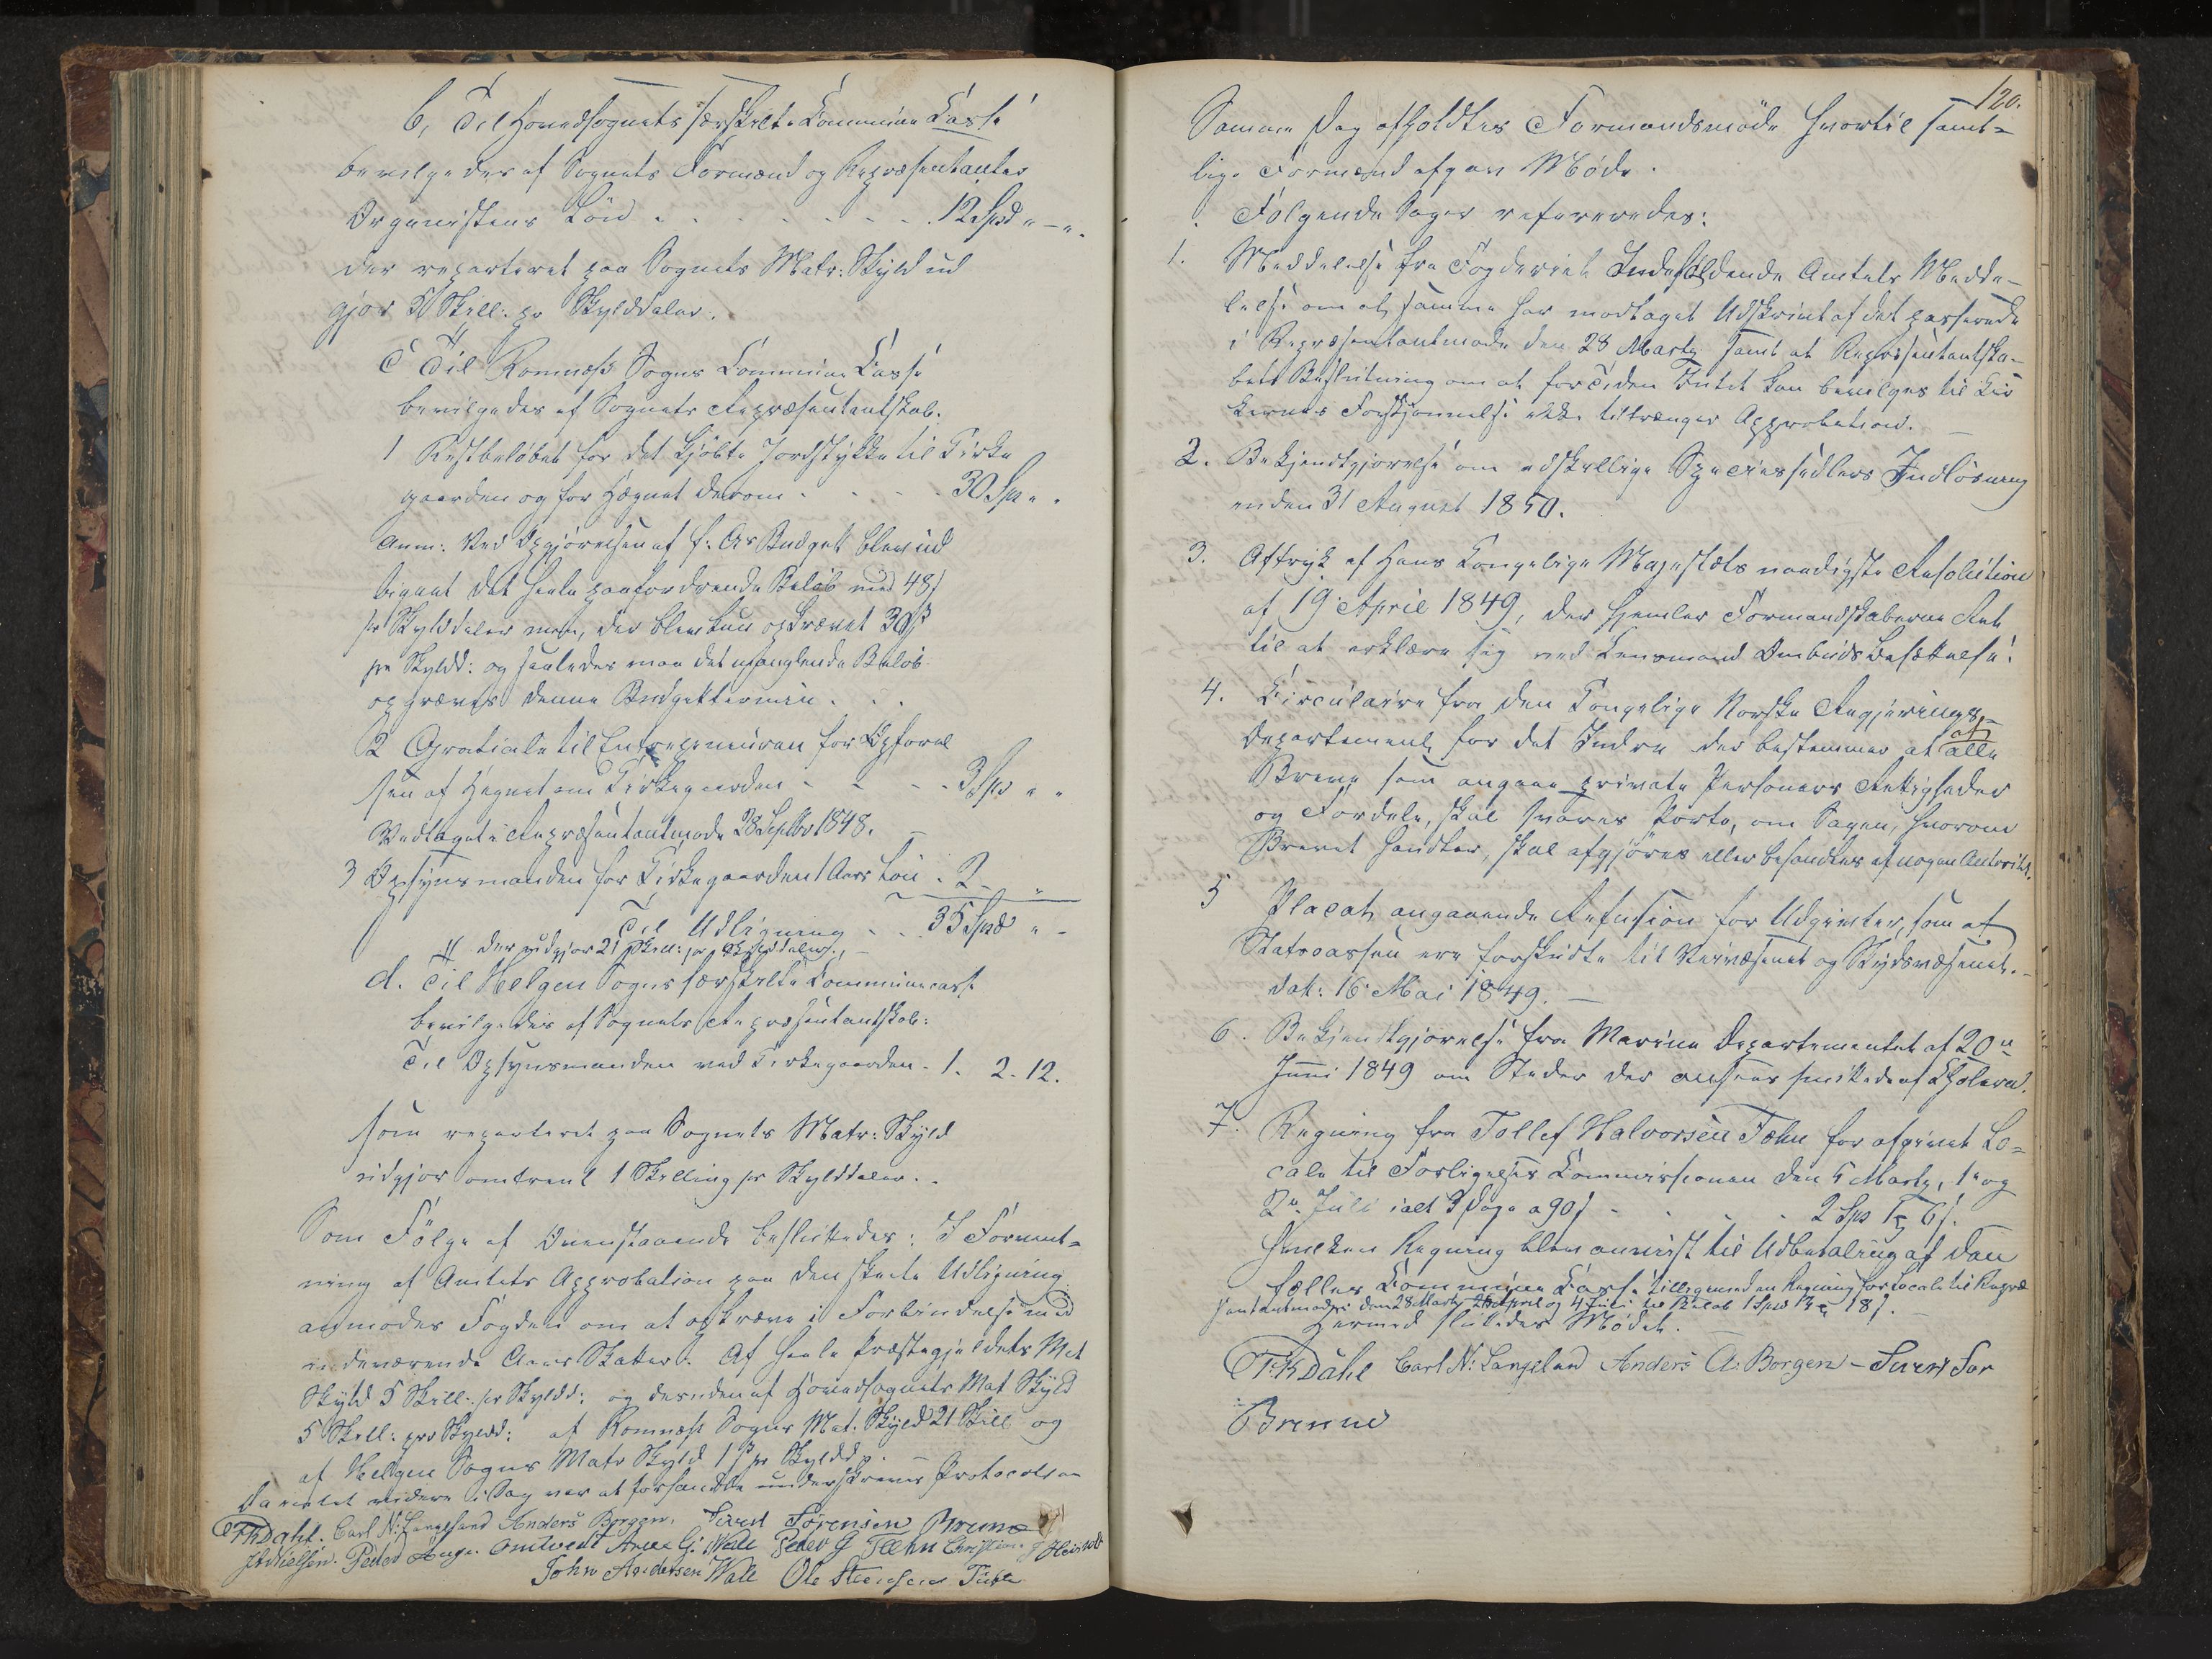 b, Til Hovedsognets særskilte Commune Casse
bevilgedes af Sognets Formænd og Repræsentanter
Organistens Løn . . . . . . . . 12 Spd " – ".
der reparteret paa Sognets Matr: Skyld ud
gjør 5 Skill: pr Skylddaler.
C Til Romnæss Sogns Commune Casse
bevilgedes af Sognets Repræsentantskab.
1 Restbeløbet for det kjøbte Jordstykke til Kirke
gaarden og for Hægnet derom . . . . 30 Sp " .
Anm: Ved Opgjørelsen af f: Ars Budget blev ud
lignet det heele paafordrende Beløb med 48 ß
pr Skylddaler men, der blev kun opkrævet 30 ß
pr Skyldd: og saaledes maa det manglende Beløb
opkræves denne Budgettermin. . .
2 Gratiale til Entrepreneuren for Opførel
sen af Hegnet om Kirkegaarden - - - - 3 Sp " "
Vedtaget i Repræsentantmøde 28 Septbr 1848. –
3 Opsynsmanden for Kirkegaarden 1 Aars Løn . 2 "
Til Udligning - . . 35 Spd " -
der udgjør 21 Skill: pr Skylddaler. –
d. Til Helgen Sogns særskilte Communecasse
bevilgedes af Sognets Repræsentantskab:
Til Opsynsmanden ved Kirkegaarden . 1. 2. 12.
som reparteret paa Sognets Matr: Skyld
udgjør omtrent 1 Skilling pr Skylddaler. .
Som Følge af Ovenstaaende besluttedes: I Forvent-
ning af Amtets Approbation paa den skeete Udligning
anmodes Fogden om at opkræve i Forbindelse med
indeværende Aars Skatter: Af heele Præstegjeldets Mat
Skyld 5 Skill: pr Skyldd: og desuden af Hovedsognets Mat Skyld
5 Skill: pro Skyldd: af Romnæss Sogns Mat: Skyld 21 Skill og
af Helgen Sogns Matr Skyld 1 ß pr Skyldd.
Da intet videre i Sag var at forhandle underskreves Protocollen
Dahl. Carl N: Langeland Anders Borgen. Sivert Sørensen Brenne
Nielsen. Peder Aug. G: Wale Peder G Tæhn Christen
John Andersen Wale Ole Steensen
120.
Samme Dag afholdtes Formandsmøde hvortil samt-
lige Formænd afgav Møde.
Følgende Sager refereredes:
1. Meddelelse fra Fogderiet Indeholdende Amtets Medde-
lelse om at samme har modtaget Udskrivt af det passerede
i Repræsentantmøde den 28 Marty samt at Repræsentantska-
bets Beslutning om at for Tiden Intet kan bevilges til Kir
kernes Forskjønnelse ikke tiltrænger Approbation. –
2. Bekjendtgjørelse om adskillige Speciessedlers Indløsning
inden 31 August 1850.
3. Aftryk af Hans Kongelige Majestæts naadigste Resolution
af 19 April 1849, der hjemler Formandskaberne Ret
til at erklære sig ved Lensmand Ombuds Besættelse.
4. Circulaire fra den Kongelige Norske Regjerings-
Departement for det Indre der bestemmer at af alle
Breve som angaae private Personers Rettigheder
og Fordele, skal svares Porto, om Sagen, hvorom
Brevet handler, skal afgjøres eller behandles af nogen Autoritet.
5 Placat angaaende Refusion for Udgivter, som af
Statscassen ere forskudte til Veivæsenet og Skydsvæsenet.
dat: 16 Mai 1849. –
6. Bekjendtgjørelse fra Marine Departementet af 20de
Juni 1849 om Steder der ansees smittede af Cholera.
7. Regning fra Tollef Halvorsen Tæhn for afgivet Lo-
cale til Forligelses Commissionen den 5 Marty, 1e og
2e Juli ialt 3 Dage a 90 ß - - - 2 Sp 1 ₥ 6 ß.
hvilken Regning blev anvist til Udbetaling af den
fælles Commune Casse tilligemed en Regning for Locale til Repræ
sentantmøder den 28 Marty April og 4 Juli til Beløb 1 Spd 18 ß.
Hermed sluttedes Mødet.
Dahl Carl N: Langeland Anders A: Borgen – Sivert Sør
Brenne